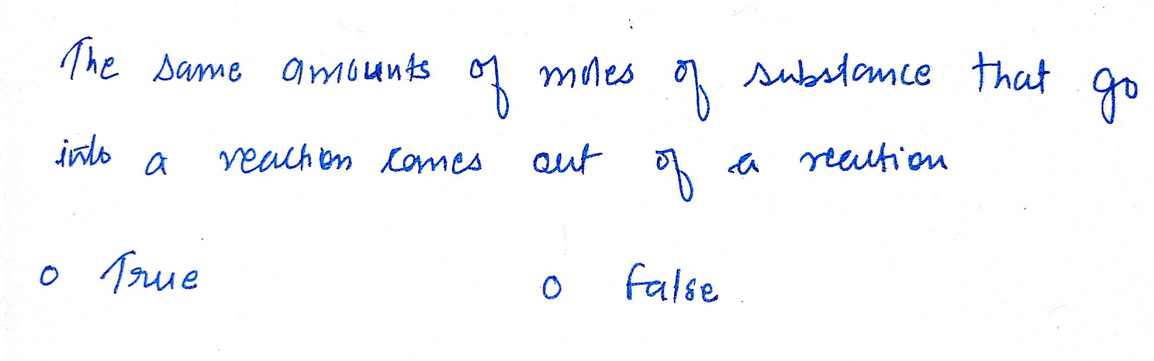 The same amounts of moles of substance that go
into a reaction comes out of a reaction
o True o false